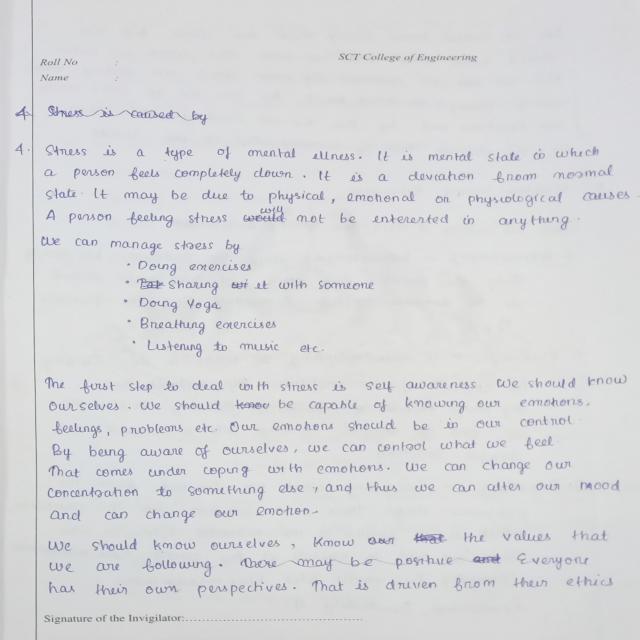 SCT College of Engineering
Roll No :
Name :
4. Stress is caused by
4. Stress is a type of mental illness. It is mental state in which
a person feels completely down. It is a deviation from normal
state. It may be due to physical, emotional or physiological causes.
A person feeling stress would will not be interested in anything.
We can manage stress by
• Doing exercises
• Sharing it with someone
• Doing Yoga
• Breathing exercises
• Listening to music etc.
The first step to deal with stress is self awareness. We should know
ourselves. We should know be capable of knowing our emotions,
feelings, problems etc. Our emotions should be in our control.
By being aware of ourselves, we can control what we feel.
That comes under coping with emotions. We can change our
concentration to something else, and thus we can alter our mood
and can change our emotion.
We should know ourselves, know our that the values that
we are following. There may be positive and Everyone
has their own perspectives. That is driven from their ethics
Signature of the Invigilator: